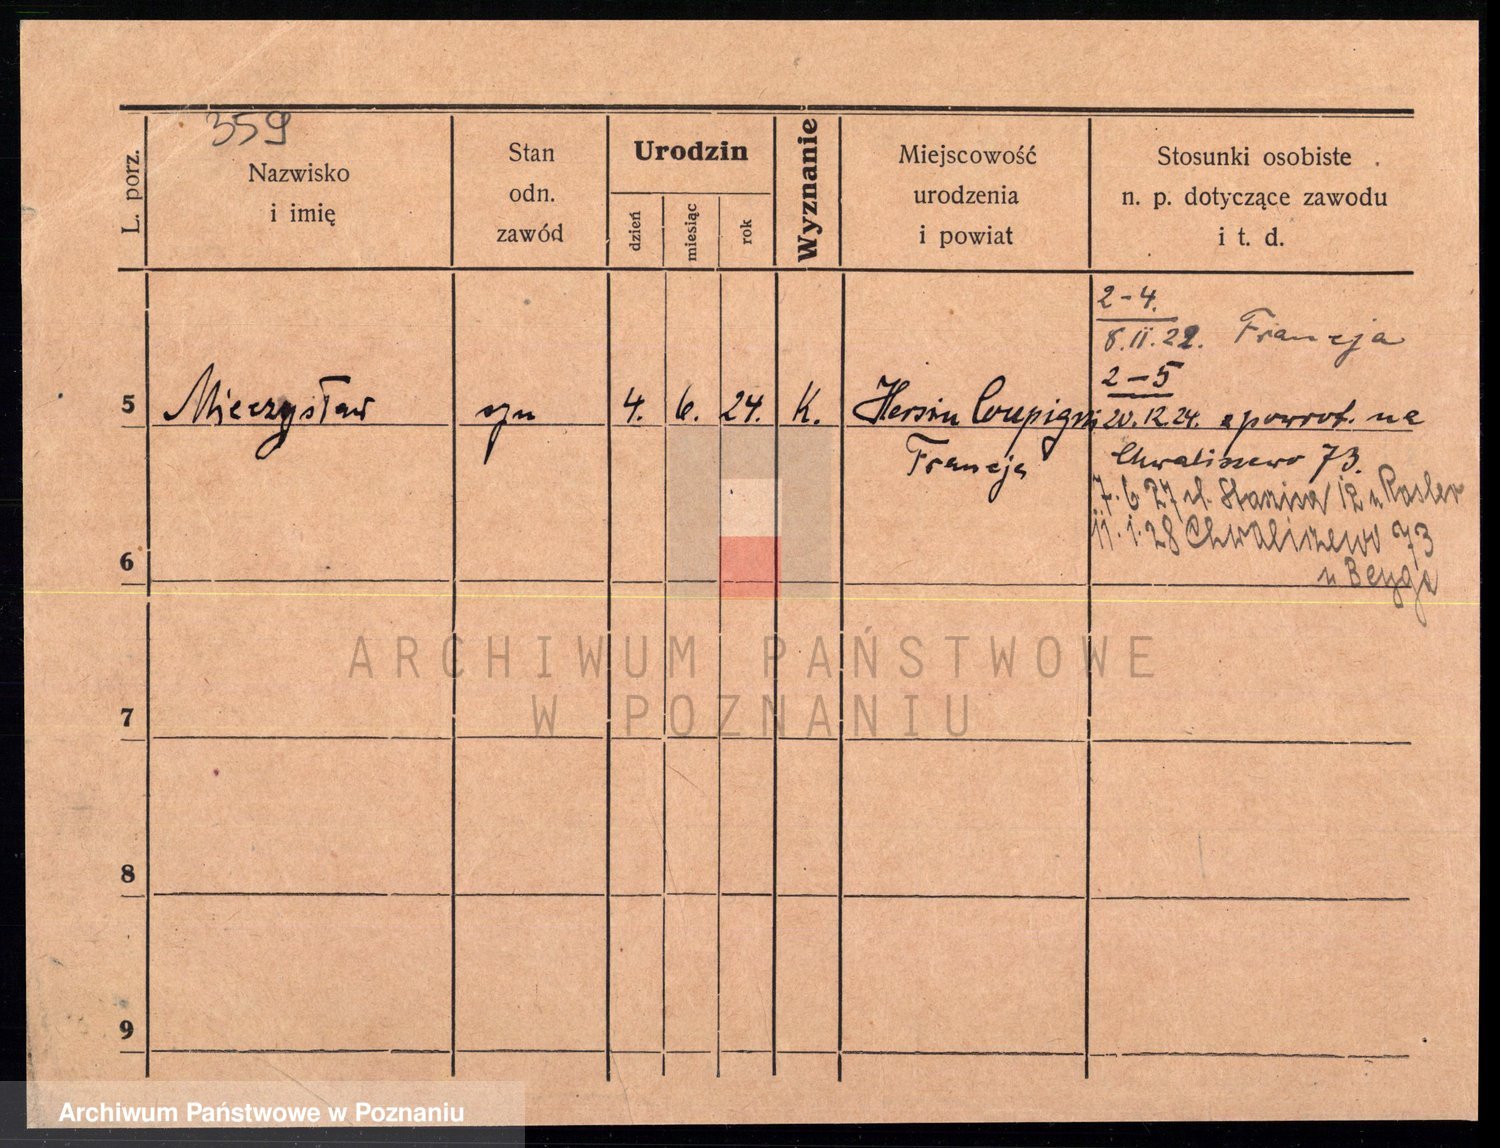 359
L. porz.
Nazwisko
i imię
Stan
odn.
zawód
Urodzin
dzień
miesiąc
rok
Wyznanie
Miejscowość
urodzenia
i powiat
Stosunki osobiste
n. p. dotyczące zawodu
i t. d.
2-4.
8.II.22. Francja
2-5
5 Mieczysław syn 4. 6. 24. K. Hersin Coupigni 20.12.24. z powrot. na
Francja
Chwaliszewo 73.
7.6.27 ul. 12 u Rosler
11.1.28 Chwaliszewo 73
6
u Beyga
7
8
9
ARCHIWUM PAŃSTWOWE
W POZNANIU
Archiwum Państwowe w Poznaniu